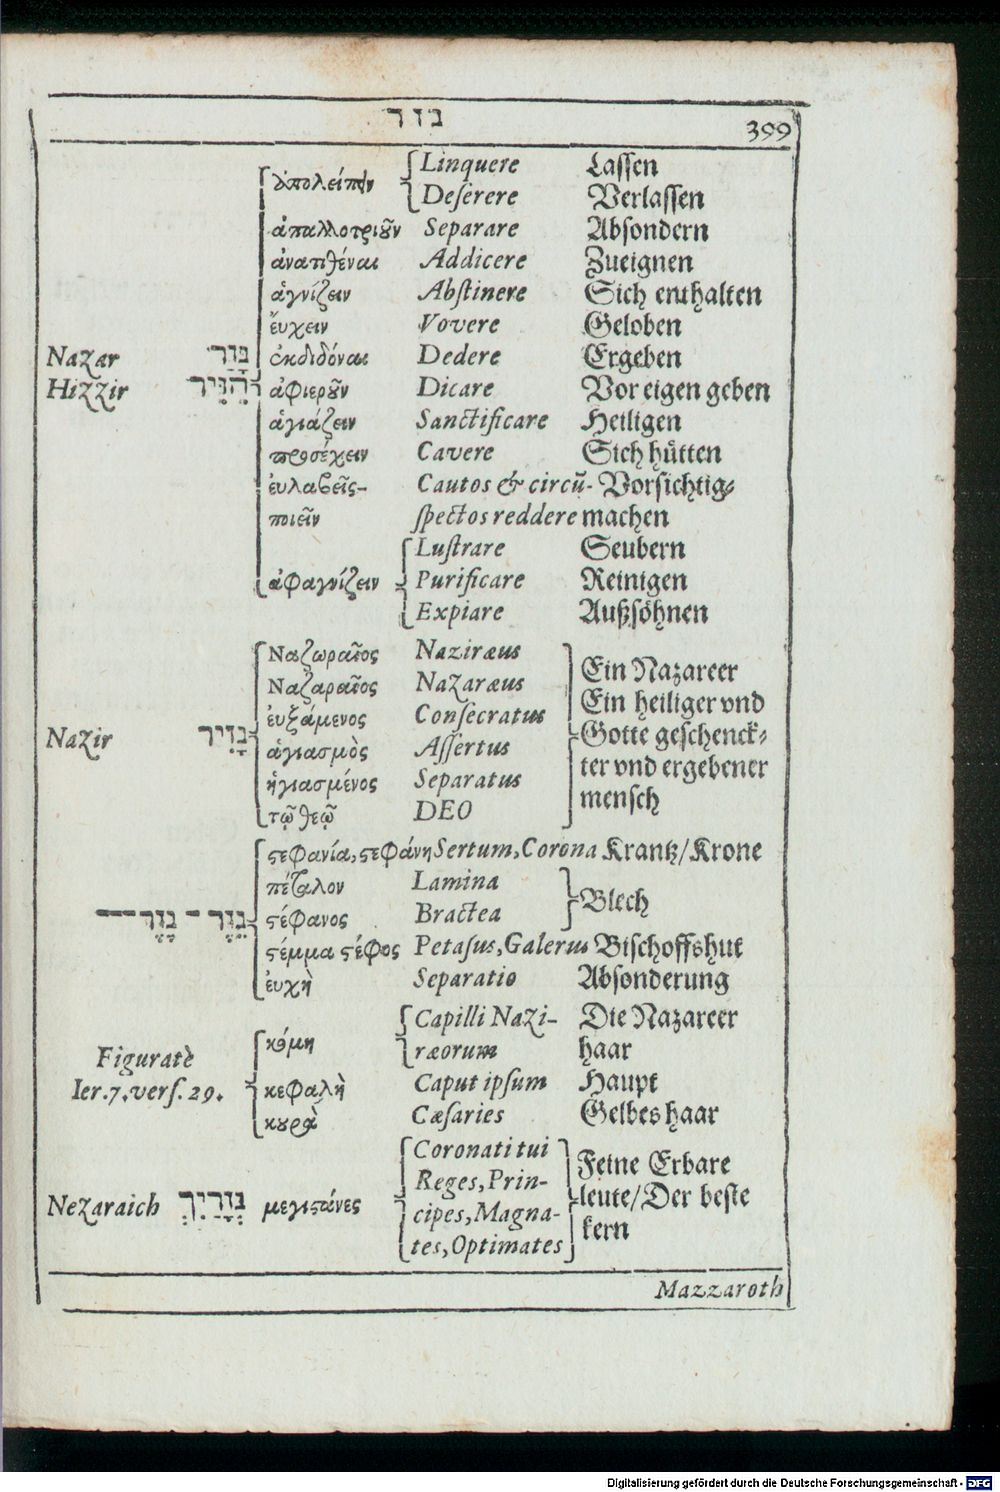 נזר 399
ἀπολείπειν Linquere Lassen
Deserere Verlassen
ἀπαλλοτριοῦν Separare Absondern
ἀνατιθέναι Addicere Zueignen
ἁγνίζειν Abstinere Sich enthalten
εὔχειν Vovere Geloben
Nazar נָזַר ἐκδιδόναι Dedere Ergeben
Hizzir הִזִּיר ἀφιεροῦν Dicare Vor eigen geben
ἁγιάζειν Sanctificare Heiligen
προσέχειν Cavere Sich hütten
ἐυλαβεῖς- Cautos & circū- Vorsichtig-
ποιεῖν spectos reddere machen
Lustrare Seubern
ἀφαγνίζειν Purificare Reinigen
Expiare Außsöhnen
Ναζωραῖος Naziræus
Ein Nazareer
Ναζαραῖος Nazaræus
Ein heiliger vnd
ἐυξάμενος Consecratus
Nazir נָזִיר Gotte geschenck-
ἁγιασμὸς Assertus
ter vnd ergebener
ἡγιασμένος Separatus
mensch
τῷ θεῷ DEO
στεφανία, στεφάνη Sertum, Corona Krantz/Krone
πέταλον Lamina
Blech
נֵזֶר - נֶזֶר -- στέφανος Bractea
στέμμα στέφος Petasus, Galerus Bischoffshut
ἐυχὴ Separatio Absonderung
Capilli Nazi- Die Nazareer
κόμη ræorum haar
Figuratè
Ier. 7. vers. 29. κεφαλὴ Caput ipsum Haupt
κουρὰ Cæsaries Gelbes haar
Coronati tui
Feine Erbare
Reges, Prin-
Nezaraich נְזָרַיִךְ μεγιστάνες leute/Der beste
cipes, Magna-
kern
tes, Optimates
Mazzaroth
Digitalisierung gefördert durch die Deutsche Forschungsgemeinschaft - DFG